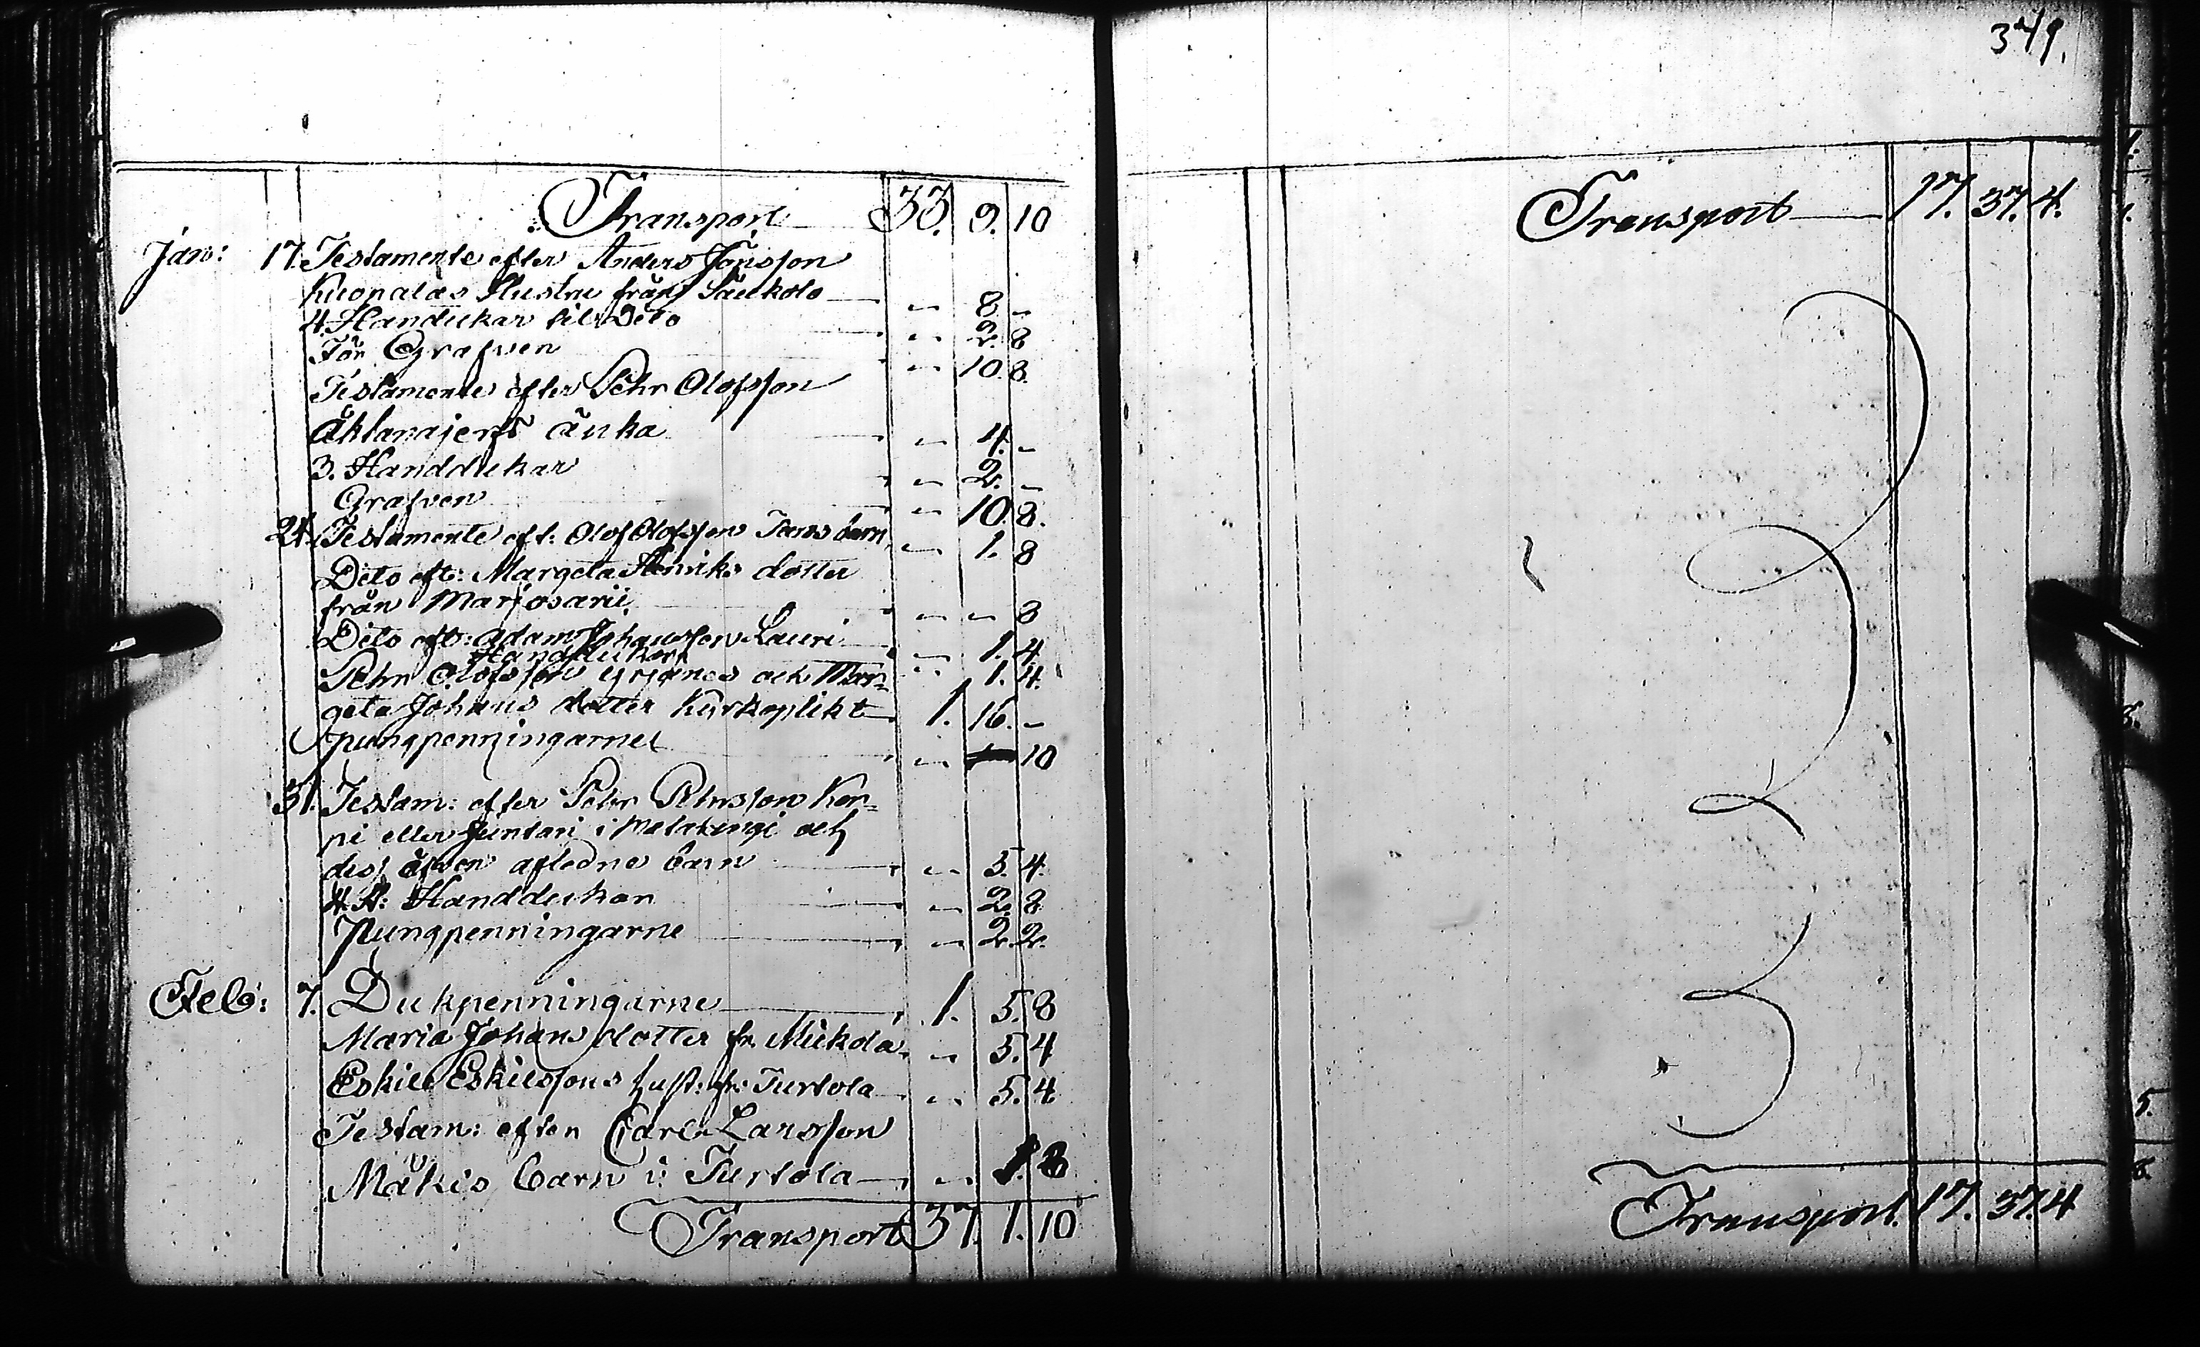 349.
Transport 33. 9. 10
Jan: 17. Testamente efter Anders Jönsson
Kuopalas Hustru från Säukolo " 8 "
4. Handukar til Dito " 2. 8
För Grafven " 10. 8.
Testamente efter Pehr Olofsson
änka " 4. "
3. Handdukar " 2. "
Grafven " 10. 8.
24. Testamente eft: Olof Olofsson barn " 1. 8
Dito eft: Margeta Henriks dotter
från Marjosarii " " 8
Dito eft: Adam Johansson Lauri " 1. 4.
Handdukar " 1. 4.
Pehr Olofsson och Mar-
geta Johans dotter Kyrkoplikt 1. 16. "
pungpenningarne " 10
31. Testam: efter Pehr Pehrsson Kor-
pi eller Juntari i och
dess äfven afledne barn " 5. 4.
4. st: Handdukar " 2. 8
Pungpenningarne " 2. 2.
Feb: 7. Dukpenningarne 1. 5. 8
Maria Johans dotter fr. Mukola " 5. 4
Eskil Eskilssons hust: fr: Turtola " 5. 4
Testam: efter Carl Larsson
Mäkis barn i Turtola " 1. 8
Transport 37. 1. 10
Transport 17. 37. 4.
Transport 17. 37. 4